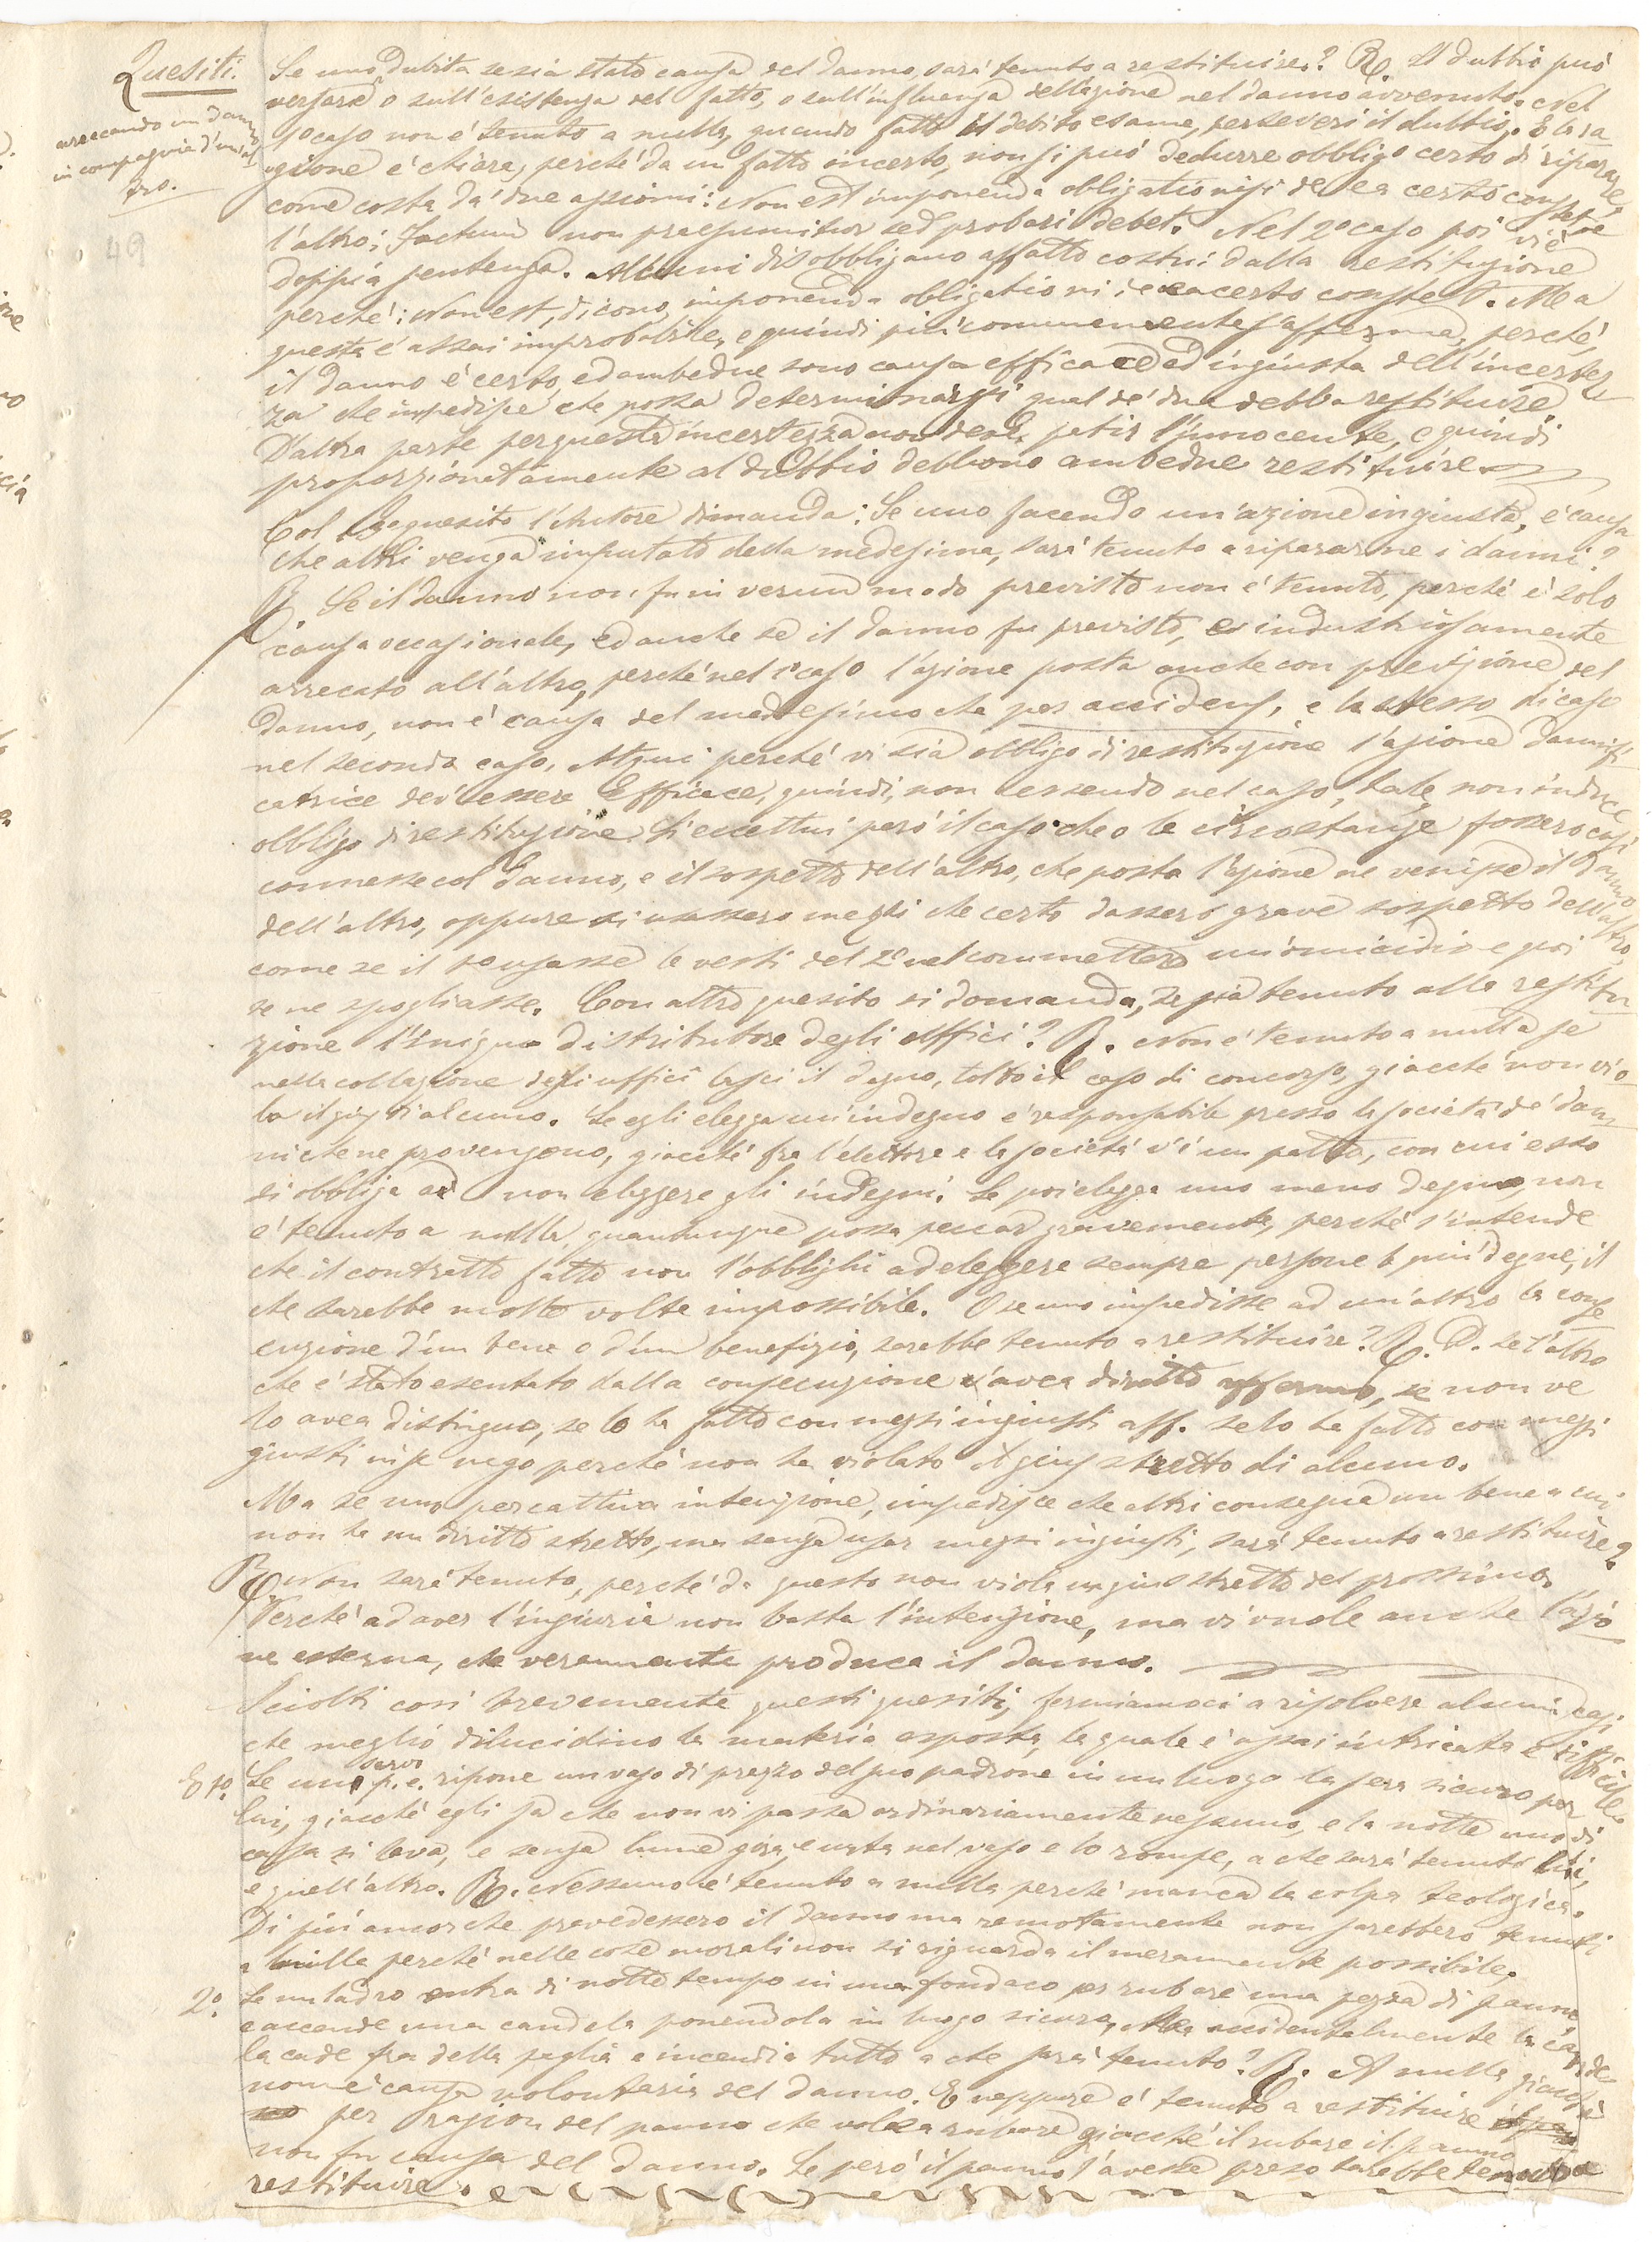 Quesiti.
arrecando un danno
in compagnia d'un al
tro.
49
Se uno dubita se sia stato causa del danno, sarà tenuto a restituire? R. Il dubbio può
versare o sull'esistenza del fatto, o sull'influenza dell'azione nel danno avvenuto. Nel
1o caso non è tenuto a nulla, quando fatto il debito esame, perseveri il dubbio. E la ra
gione è chiara, perché da un fatto incerto, non si può dedurre obbligo certo di riparare,
come costa da' due assiomi: Non est imponenda obligatio nisi de ea certo constet, e
l'altro: factum non praesumitur sed probari debet. Nel 2o caso poi vi è
doppia sentenza. Alcuni disobbligano affatto costui dalla restituzione
perché: Non est, dicono, imponenda obligatio ni de ea certo constet. Ma
questa è assai improbabile, e quindi più comunemente s'afferma, perché,
il danno è certo, ed ambedue sono causa efficace ed ingiusta dell'incertez
za che impedisce che possa determinarsi qual de' due debba restituire
D'altra parte per questa incertezza non deve patir l'innocente, e quindi
proporzionatamente al dubbio debbono ambedue restituire.
Col quesito l'Autore dimanda: Se uno facendo un'azione ingiusta, è causa
che altri venga imputato della medesima, sarà tenuto a ripararne i danni?
R. Se il danno non fu in verun modo previsto non è tenuto, perché è solo
causa occasionale, ed anche se il danno fu previsto, e industriosamente
arrecato all'altro, perché nel 1o caso l'azione posta anche con previsione del
danno, non è causa del medesimo che per accidens, e lo stesso dicasi
nel secondo caso. Atqui perché vi sia obbligo di restituzione l'azione dannifi
catrice dev'essere Efficace, quindi, non essendo nel caso, tale non induce
obbligo di restituzione. Si eccettui però il caso che o le circostanze fossero così
connesse col danno, e il sospetto dell'altro, che posta l'azione ne venisse il danno
dell'altro, oppure si usassero mezzi che certo dassero grave sospetto dell'altro,
come se il 1o usasse le vesti del 2o nel commettere un'omicidio e poi
se ne spogliasse. Con altro quesito si domanda, se sia tenuto alla restitu
zione l'Iniquo distributore degli uffici? R. Non è tenuto a nulla se
nella collazione degli uffici lasci il degno, tolto il caso di concorso, giacché non vio
la il gius di alcuno. Se egli elegga un'indegno è responsabile presso la società de' dan
ni che ne provengono, giacché fra l'elettore e la società v'è un patto, con cui esso
si obbliga ad non eleggere gli indegni. Se poi elegga uno meno degno, non
è tenuto a nulla, quantunque possa peccar gravemente, perché s'intende
che il contratto fatto non l'obblighi ad eleggere sempre persone le più degne, il
che sarebbe molte volte impossibile. O se uno impedisse ad un'altro la conse
cuzione d'un bene o d'un benefizio, sarebbe tenuto a restituire? R. D. se l'altro
che è stato esentato dalla consecuzione v'avea diritto affermo, se non ve
lo avea distinguo, se lo ha fatto con mezzi ingiusti aff. se lo ha fatto con mezzi
giusti in se nego perché non ha violato il gius stretto di alcuno.
Ma se uno per cattiva intenzione, impedisce che altri consegua un bene a cui
non ha un diritto stretto, ma senza usar mezzi ingiusti, sarà tenuto a restituire?
R. Non sarà tenuto, perché da questo non viola un gius stretto del prossimo.
Perché ad aver l'ingiuria non basta l'intenzione, ma vi vuole anche l'azio
ne esterna, che veramente produca il danno.
Sciolti così brevemente questi quesiti, fermiamoci a risolvere alcuni casi
che meglio dilucidino la materia esposta, la quale è assai intricata e difficile.
E 1o. Se un servo p. e. ripone un vaso di prezzo del suo padrone in un luogo la sera sicuro per
lui, giacché egli sa che non vi passa ordinariamente nessuno, e la notte uno di
casa si leva, e senza lume gira, e urta nel vaso e lo rompe, a che sarà tenuto lui,
e quell'altro. R. Nessuno è tenuto a nulla perché manca la colpa teologica.
Di più ancorché prevedessero il danno ma remotamente non sarebbero tenuti
a nulla perché nelle cose morali non si riguarda il meramente possibile.
2o. Se un ladro entra di notte tempo in un fondaco per rubare una pezza di panno
e accende una candela ponendola in luogo sicuro, Ma accidentalmente la cande
la cade fra della paglia e incendia tutto a che sarà tenuto? R. A nulla giacché
non è causa volontaria del danno. E neppure è tenuto a restituire
per ragion del panno che voleva rubare giacché il rubare il panno
non fu causa del danno. Se però il panno l'avesse preso sarebbe tenuto a
restituire.